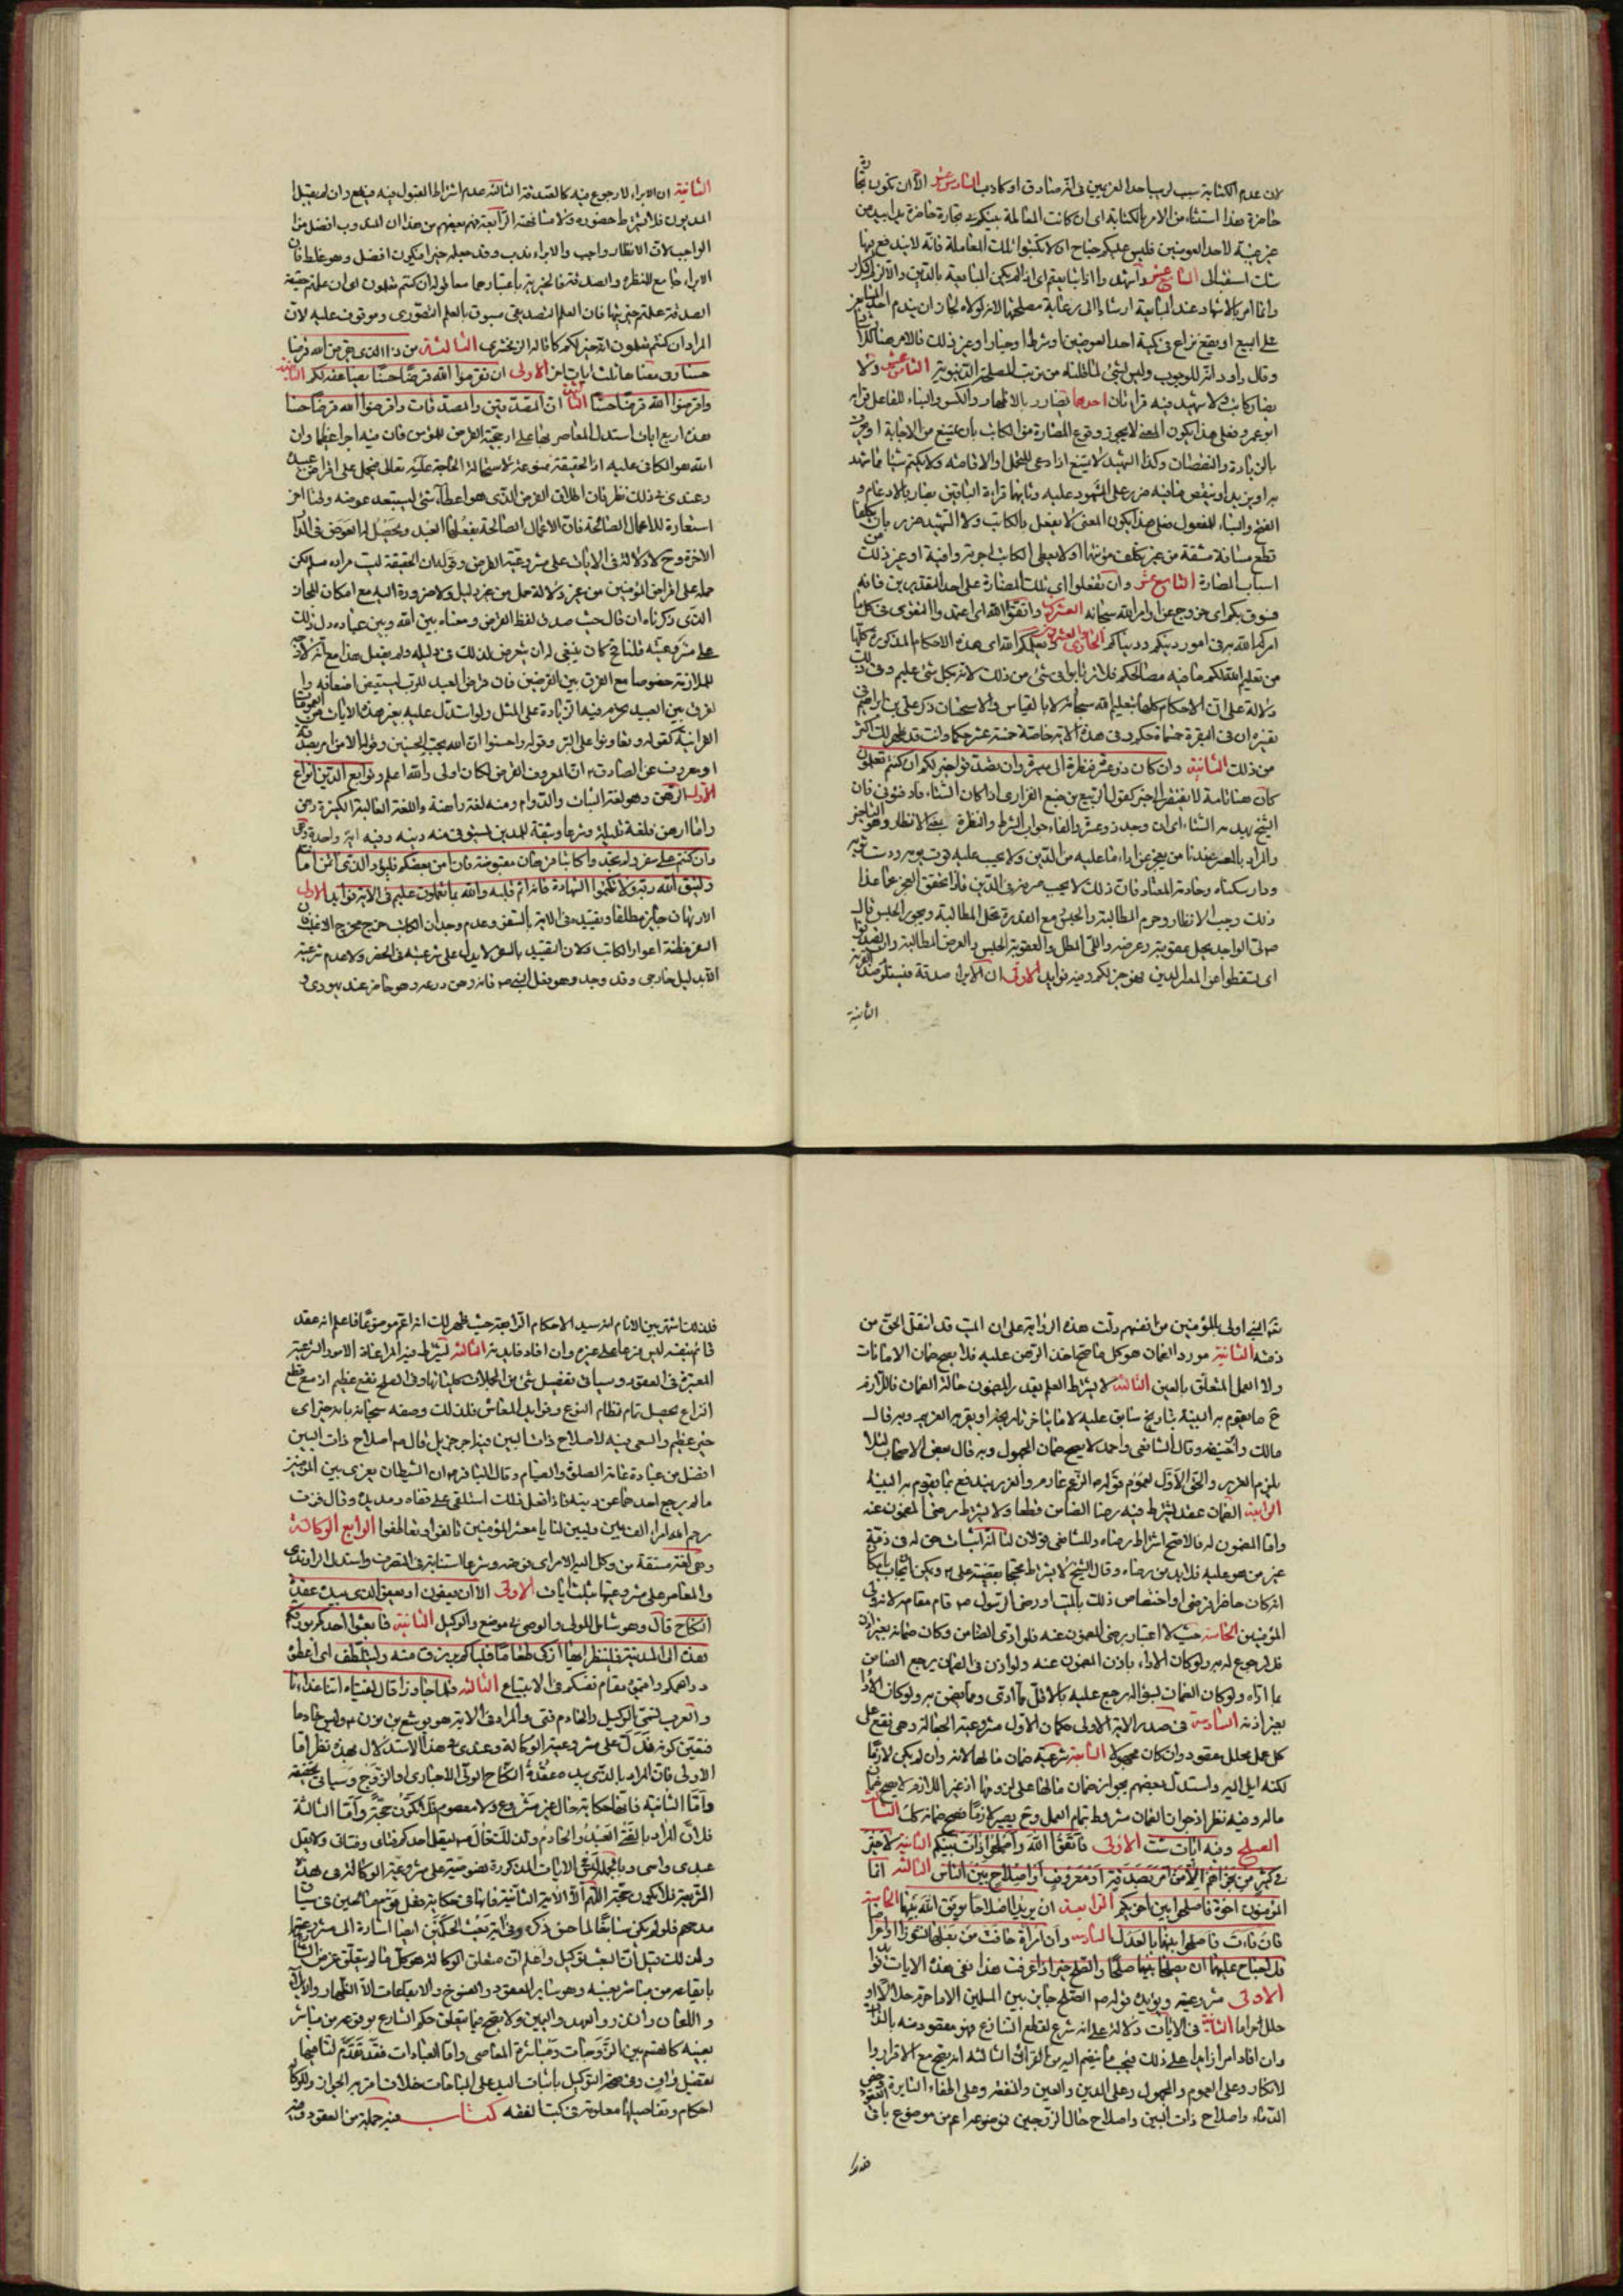 لان عدم الكتابة سبب لريب احد الغريمين في انه صادق او كاذب السادس عشر الا ان تكون تجارة
حاضرة هذا استثناء من الامر بالكتابة اى ان كانت المعاملة بينكم تجارة حاضرة يدا بيد من
غير غيبة لاحد العوضين فليس عليكم جناح ان لا تكتبوا تلك المعاملة فانه لا يندفع بها
السابع عشر واشهدوا اذا تبايعتم اى اذا لم يكن المبايعة بالدين
وانما امر بالاشهاد عند المبايعة ارشادا الى رعاية مصلحتها لانه لولاه لجاز ان يندم احد المتبايعين
على البيع او يقع نزاع في كمية احد العوضين او شرط او خيار او غير ذلك فالامر هنا
وقال داود انه للوجوب وليس بشئ لما قلناه من ترتب المصلحة الدنيوية الثامن عشر ولا
يضار كاتب ولا شهيد فيه قراءتان احدهما يضارر بالاظهار والكسر والبناء للفاعل قراءة
ابو عمرو فعلى هذا يكون المعنى لا يجوز وقوع المضارة من الكاتب بان يمتنع من الاجابة او يحرف
بالزيادة والنقصان وكذا الشهيد لا يمتنع اذا دعى للتحمل او الاقامة ولا يكتم شيئا مما شهد
به او يزيد او ينقص ما فيه ضرر على المشهود عليه وثانيهما قراءة الباقين يضار بالادغام و
الفتح والبناء للمفعول فعلى هذا يكون المعنى لا يفعل بالكاتب ولا الشهيد ضرر بان يكلفا
قطع مسافة مشقة من غير تكلف مؤنتها او لا يعطى الكاتب اجرته وافية او غير ذلك من
اسباب المضارة التاسع عشر وان تفعلوا اى تلك المضارة على احد التقديرين فانه
فسوق بكم اى خروج عن اوامر الله سبحانه العشرون واتقوا الله اى اعتمدوا التقوى في كل ما
امركم الله به في امور دينكم ودنياكم الحادى والعشرون ويعلمكم الله اى هذه الاحكام المذكورة كلها
من تعليم الله لكم ما فيه مصالحكم فلا ترتابوا في شئ من ذلك لانه بكل شئ عليم وفى ذلك
دلالة على ان الاحكام كلها بتعليم الله سبحانه لا بالقياس والاستحسان ذكر على بن ابراهيم في
تفسيره ان في البقرة خمسماة حكم وفى هذه الآية خاصة خمسة عشر حكما وانت قد ظهر لك اكثر
من ذلك الثانية وان كان ذو عسرة فنظرة الى ميسرة وان تصدقوا خير لكم ان كنتم تعلمون
كان هنا تامة لا يفتقر الى خبر كقول الربيع بن ضبع الفزارى اذا كان الشتاء فادفئونى فان
الشيخ يهدمه الشتاء اى ان وجد ذو عسرة والفاء جواب الشرط والنظرة بمعنى الانظار وهو التاخير
والمراد بالعسر عندنا من يعجز عن اداء ما عليه من الدين ولا يحسب عليه قوت يومه ودست ثوبه
ودار سكناه وخادمه المعتاد فان ذلك لا يجب صرفه في الدين فاذا تحقق العجز عما عدا
ذلك وجب الانظار وحرم المطالبة والحبس ومع القدرة تحل المطالبة ويجوز الحبس قال
ص لى الواجد يحل عقوبته وعرضه واللى المطل والعقوبة الحبس والعرض المطالبة
اى تسقطوا عن المعسر الدين فهو خير لكم وفيه فوايد الاولى ان الابراء صدقة
الثانية
الثانية ان الابراء لا رجوع فيه كالصدقة الثالثة عدم اشتراط القبول فيه فيقع وان لم يقبل
المديون فلا يشترط حضوره ولا مشافهته الرابعة فهم بعضهم من هذا ان المندوب افضل من
الواجب لان الانظار واجب والابراء ندب وقد جعله خيرا فيكون افضل وهو غلط فان
الابراء جامع للنظرة والصدقة فالخيرية باعتبارهما معا قوله ان كنتم تعلمون اى ان علمتم حقيقة
الصدقة علمتم خيريتها فان العلم التصديقى مسبوق بالعلم التصورى وموقوف عليه لا ان
المراد ان كنتم تعلمون انه خير لكم كما قاله الزمخشرى الثالثة من ذا الذى يقرض الله قرضا
حسنا وفى معناها ثلث ايات اخر الاولى ان تقرضوا الله قرضا حسنا يضاعفه لكم الثانية
واقرضوا الله قرضا حسنا الثالثة ان المصدقين والمصدقات واقرضوا الله قرضا حسنا
هذه اربع ايات استدل المعاصر بها على ارجحية القرض للمؤمن فان فيه اجرا عظيما وان
الله هو المكافى عليه اذ الحقيقة ممتنعة لاستحالة الحاجة عليه تعالى فيحمل على اقراض عبيده
وعندى في ذلك نظر فان اطلاق القرض الذى هو اعطاء شئ ليستعيد عوضه وقتا اخر
استعارة للاعمال الصالحة فان الاعمال الصالحة يفعلها العبد ويحصل له العوض في الدار
الاخرة وح لا دلالة في الايات على مشروعية القرض وقوله ان الحقيقة ليست مرادة مسلم لكن
حمله على اقراض المؤمنين من غير دلالة حمل من غير دليل ولا ضرورة اليه مع امكان المجاز
الذى ذكرناه ان قال حيث صدق لفظ القرض ومعناه بين الله وبين عباده دل ذلك
على مشروعيته قلنا ح كان ينبغى له ان يتعرض لذلك في دليله ولم يفعل هذا مع انه لا وجه
للملازمة خصوصا مع الفرق بين القرضين فان قرض العبد للرب يستعيض اضعافه و
القرض بين العبيد يحرم فيه الزيادة على المثل ولو استدل عليه بغير هذه الايات من العمومات
القرانية كقوله وتعاونوا على البر وقوله واحسنوا ان الله يحب المحسنين وقوله الا من امر بصدقة
او معروف عن الصادق ان المعروف القرض لكان اولى والله اعلم وتوابع الدين انواع
الاول الرهن وهو لغة الثبات والدوام ومنه نعمة راهنة واللغة الغالبة الكثيرة رهن
واما ارهن فلغة قليلة وشرعا وثيقة للمدين ليستوفى منه دينه وفيه اية واحدة وهى
وان كنتم على سفر ولم تجدوا كاتبا فرهان مقبوضة فان امن بعضكم بعضا فليؤد الذى ائتمن امانته
وليتق الله ربه ولا تكتموا الشهادة فانه اثم قلبه والله بما تعملون عليم في الاية فوايد الاولى
الارتهان جايز مطلقا وتقييده في الاية بالسفر وعدم وجدان الكاتب خرج مخرج الاغلب فان
السفر مظنة اعواز الكاتب ولان التقييد بالسفر لا يدل على شرعيته في الحضر ولا عدم شرعيته
الا بدليل خارجى وقد وجد وهو فعل النبى ص فانه رهن درعه وهو حاضر عند يهودى و
النبى اولى بالمؤمنين من انفسهم دلت هذه الرواية على ان الميت قد انتقل الحق من
ذمته الثانية مورد الضمان هو كل ما صح اخذ الرهن عليه فلا يصح ضمان الامانات
ولا العمل المتعلق بالعين الثالثة لا يشترط العلم بقدر المضمون حالة الضمان فاللازم
ح ما يقوم به البينة بتاريخ سابق عليه لا ما يتاخر تاريخه او يقر به الغريم وبه قال
مالك وابو حنيفة وقال الشافعى واحمد لا يصح ضمان المجهول وبه قال بعض الاصحاب لئلا
يلزم الغرر والحق الاول لعموم قوله ص الزعيم غارم والغرر يندفع بما يقوم به البينة
الرابعة الضمان عقد يشترط فيه رضا الضامن قطعا ولا يشترط رضى المضمون عنه
واما المضمون له فالاصح اشتراط رضاه وللشافعى قولان لنا انه اثبات حق له في ذمة
غير من هو عليه فلا بد من رضاه وقال الشيخ لا يشترط محتجا بقضية على ويمكن الجواب
انه كان حاضرا فرضى او اختصاص ذلك بالميت او رضى الرسول ص قام مقامه لانه ولى
المؤمنين الخامسة حيث لا اعتبار برضى المضمون عنه فلو ادى الضامن وكان ضمانه بغير اذن
فلا رجوع له به ولو كان الاداء باذن المضمون عنه ولو اذن في الضمان يرجع الضامن
بما اداه ولو كان الضمان بسؤاله رجع عليه بالاقل مما ادى ومما ضمن به ولو كان الاداء
بغير اذنه السادسة في صدر الاية الاولى مكان الاول مشروعية الجعالة وهى تقع على
كل عمل محلل مقصود وان كان مجهولا الثانية شرعية ضمان مالها لانه وان لم يكن لازما
لكنه ايل اليه واستدل بعضهم بجواز ضمان مالها على لزومها اذ غير اللازم لا يصح ضمان
ماله وفيه نظر اذ جواز الضمان مشروط بتمام العمل وح يصير لازما فيصح ضمانه الثالث
الصلح وفيه ايات ست الاولى فاتقوا الله واصلحوا ذات بينكم الثانية لا خير
في كثير من نجواهم الا من امر بصدقة او معروف او اصلاح بين الناس الثالثة انما
المؤمنون اخوة فاصلحوا بين اخويكم الرابعة ان يريدا اصلاحا يوفق الله بينهما الخامسة
فان فاءت فاصلحوا بينهما بالعدل السادسة وان امراة خافت من بعلها نشوزا او اعراضا
فلا جناح عليهما ان يصلحا بينهما صلحا والصلح خير اذا عرفت هذا ففى هذه الايات فوايد
الاولى مشروعيته ويؤيده قوله ص الصلح جايز بين المسلمين الا ما حرم حلالا او
حلل حراما الثانية في الايات دلالة على انه شرع لقطع التنازع فهو مقصود منه بالذات
وان افاد امرا زايدا على ذلك فيجب ما ينضم اليه من القرائن الثالثة انه يصح مع الاقرار و
الانكار وعلى المعلوم والمجهول وعلى الدين والعين والمنفعة وعلى اطفاء النايرة وحقن
الدماء واصلاح ذات البين واصلاح حال الزوجين فموضوعه اعم من موضوع باقى العقود
فلذلك اشتهر بين الانام انه سيد الاحكام الرابعة حيث ظهر لك انه اعم موضوعا فاعلم انه عقد
قائم بنفسه ليس فرعا على غيره وان افاد فايدته الثالثة يشترط فيه المراعاة الامور الشرعية
المعتبرة في العقود وسياتى تفصيل شئ من المجملات كليتها وفى الصلح نفع عظيم اذ مع قطع
النزاع يحصل تمام نظام النوع وفوايد المعاش فلذلك وصفه سبحانه بانه خير اى
خير عظيم والسعى فيه لاصلاح ذات البين فيه اجر جزيل قال ص اصلاح ذات البين
افضل من عامة الصلوة والصيام وقال الباقر ان الشيطان يغرى بين المؤمنين
ما لم يرجع احدهما عن دينه فاذا فعل ذلك استلقى على قفاه ومد يديه وقال فزت
رحم الله امرا الف بين وليين لنا يا معشر المؤمنين تالفوا وتعاطفوا الرابع الوكالة
وهى لغة مشتقة من وكل اليه الامر اى فوضه وشرعا استنابة في التصرف واستدل الراوندى
والمعاصر على مشروعيتها بثلث ايات الاولى الا ان يعفون او يعفو الذى بيده عقدة
النكاح قال وهو شامل للولى والوصى في موضع والوكيل الثانية فابعثوا احدكم بورقكم
هذه الى المدينة فلينظر ايها ازكى طعاما فلياتكم برزق منه وليتلطف اى اعطوه
دراهمكم واقيموه مقام نفسكم في الابتياع الثالثة فلما جاوزا قال لفتيه اتنا غداءنا
والعرب تسمى الوكيل والخادم فتى والمراد في الاية هو يوشع بن نون وليس خادما
فتعين كونه فدل على مشروعية الوكالة وعندى في هذا الاستدلال بهذه نظر اما
الاولى فان المراد بالذى بيده عقدة النكاح الولى الاجبارى او الزوج وسياتى تحقيقه
واما الثانية فانها حكاية حال غير مشروع ولا معصوم فلا يكون حجة واما الثالثة
فلان المراد بالفتى العبد والخادم ولذلك قال ص ليقل احدكم فتاى وفتاتى ولا يقل
عبدى وامتى وبالجملة الايات المذكورة نصوصيته على مشروعية الوكالة في هذه
الشريعة فلا يكون حجة اللهم الا الاية الثانية فانها في حكاية فعل قوم صالحين في سياق
مدحهم فلو لم يكن سائغا لما حسن ذكره وفى اية بعث الحكمين ايضا اشارة الى مشروعيتها
ولذلك قيل ان البعث توكيل واعلم ان متعلق الوكالة هو كل ما لم يتعلق غرض الشارع
بايقاعه من مباشر بعينه وهو ساير العقود والفسوخ والايقاعات الا الظهار والايلاء
واللعان والنذر والعهد واليمين ولا يصح فيما يتعلق حكم الشارع بوقوعه من مباشر
بعينه كالقسم بين الزوجات ومباشرة المعاصى واما العبادات فقد تقدم لنا فيها
تفصيل واف وفى صحة التوكيل باثبات اليد على المباحات خلاف اقربه الجواز وللوكالة
احكام وتفاصيلها معلومة في كتب الفقه كتاب فيه جملة من العقود وفيه